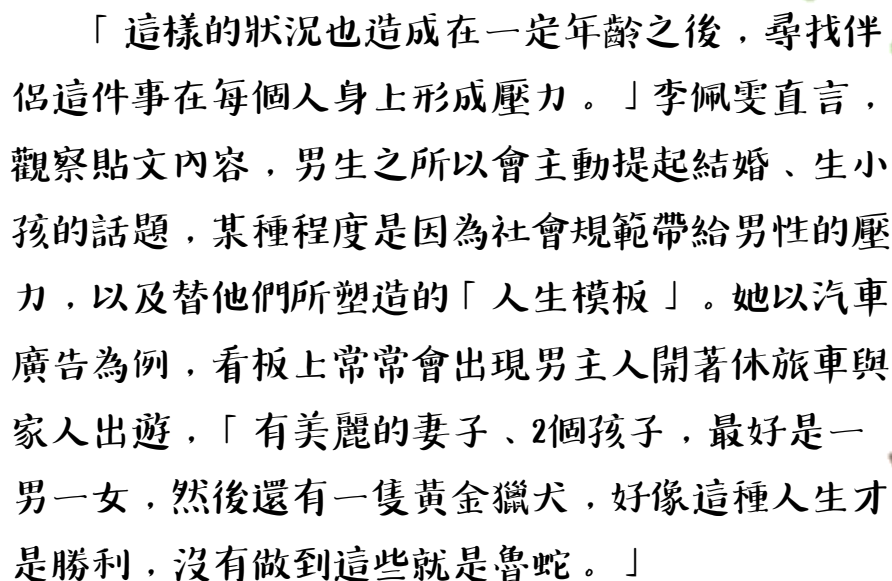 「這樣的狀況也造成在一定年齡之後，尋找伴
侶這件事在每個人身上形成壓力。」李佩雯直言，
觀察貼文內容，男生之所以會主動提起結婚、生小
孩的話題，某種程度是因為社會規範帶給男性的壓
力，以及替他們所塑造的「人生模板」。她以汽車
廣告為例，看板上常常會出現男主人開著休旅車與
家人出遊，「有美麗的妻子、2個孩子，最好是一
男一女，然後還有一隻黃金獵犬，好像這種人生才
是勝利，沒有做到這些就是魯蛇。」